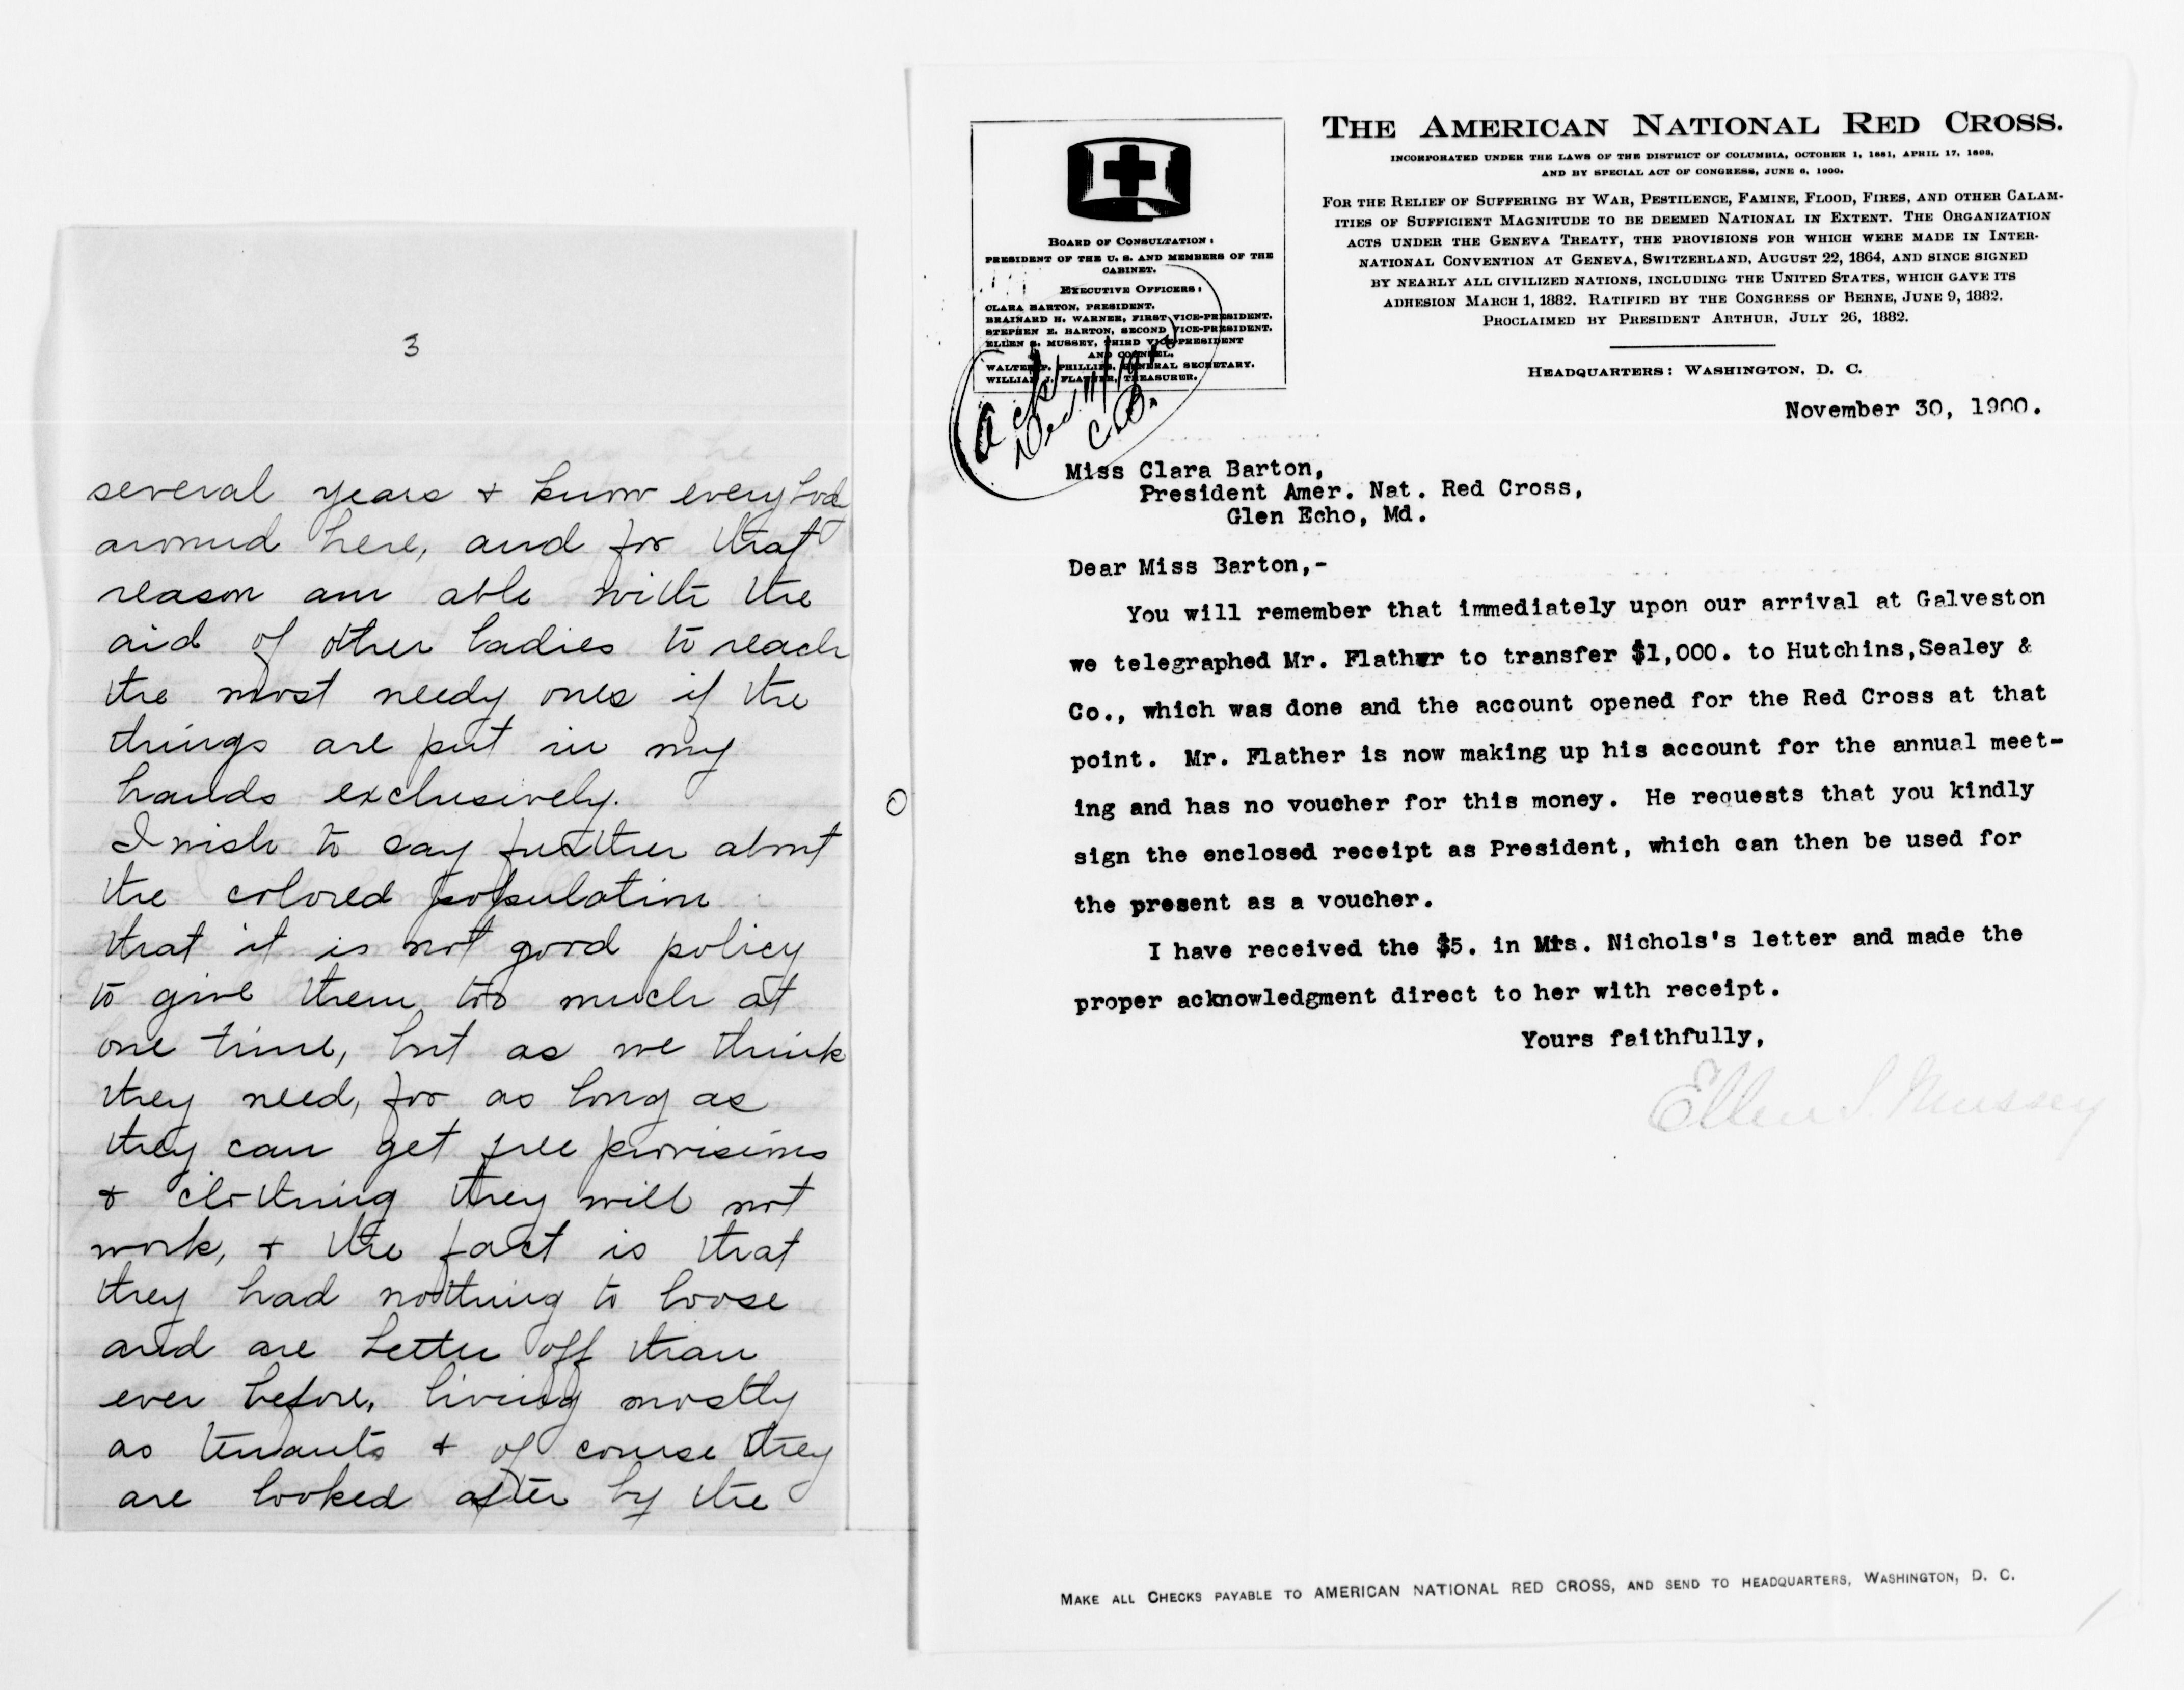 3
several years + know everybod
around here, and for that
reason am able with the
aid of other ladies to reach
the most needy ones if the
things are put in my
hands exclusively.
I wish to say further about
the colored population
that it is not good policy
to give them too much at
one time, but as we think
they need, for as long as
they can get free provisions
+ clothing they will not
work, + the fact is that
they had nothing to loose
and are better off than
ever before, living mostly
as tenants + of course they
are looked after by the
BOARD OF CONSULTATION:
PRESIDENT OF THE U. S. AND MEMBERS OF THE
CABINET.
EXECUTIVE OFFICERS:
CLARA BARTON, PRESIDENT.
BRAINARD H. WARNER, FIRST VICE-PRESIDENT.
STEPHEN E. BARTON, SECOND VICE-PRESIDENT.
ELLEN S. MUSSEY, THIRD VICE-PRESIDENT
AND COUNSEL.
WALTER P. PHILLIPS, GENERAL SECRETARY.
WILLIAM J. FLATHER, TREASURER.
Ack
Dec. 11/19
C.B.
THE AMERICAN NATIONAL RED CROSS.
INCORPORATED UNDER THE LAWS OF THE DISTRICT OF COLUMBIA, OCTOBER 1, 1881, APRIL 17, 1893,
AND BY SPECIAL ACT OF CONGRESS, JUNE 6, 1900.
FOR THE RELIEF OF SUFFERING BY WAR, PESTILENCE, FAMINE, FLOOD, FIRES, AND OTHER CALAM-
ITIES OF SUFFICIENT MAGNITUDE TO BE DEEMED NATIONAL IN EXTENT. THE ORGANIZATION
ACTS UNDER THE GENEVA TREATY, THE PROVISIONS FOR WHICH WERE MADE IN INTER-
NATIONAL CONVENTION AT GENEVA, SWITZERLAND, AUGUST 22, 1864, AND SINCE SIGNED
BY NEARLY ALL CIVILIZED NATIONS, INCLUDING THE UNITED STATES, WHICH GAVE ITS
ADHESION MARCH 1, 1882. RATIFIED BY THE CONGRESS OF BERNE, JUNE 9, 1882.
PROCLAIMED BY PRESIDENT ARTHUR, JULY 26, 1882.
HEADQUARTERS: WASHINGTON, D. C.
November 30, 1900.
Miss Clara Barton,
President Amer. Nat. Red Cross,
Glen Echo, Md.
Dear Miss Barton,-
You will remember that immediately upon our arrival at Galveston
we telegraphed Mr. Flather to transfer $1,000. to Hutchins,Sealey &
Co., which was done and the account opened for the Red Cross at that
point. Mr. Flather is now making up his account for the annual meet-
ing and has no voucher for this money. He requests that you kindly
sign the enclosed receipt as President, which can then be used for
the present as a voucher.
I have received the $5. in Mrs. Nichols's letter and made the
proper acknowledgment direct to her with receipt.
Yours faithfully,
Ellen S. Mussey
MAKE ALL CHECKS PAYABLE TO AMERICAN NATIONAL RED CROSS, AND SEND TO HEADQUARTERS, WASHINGTON, D. C.